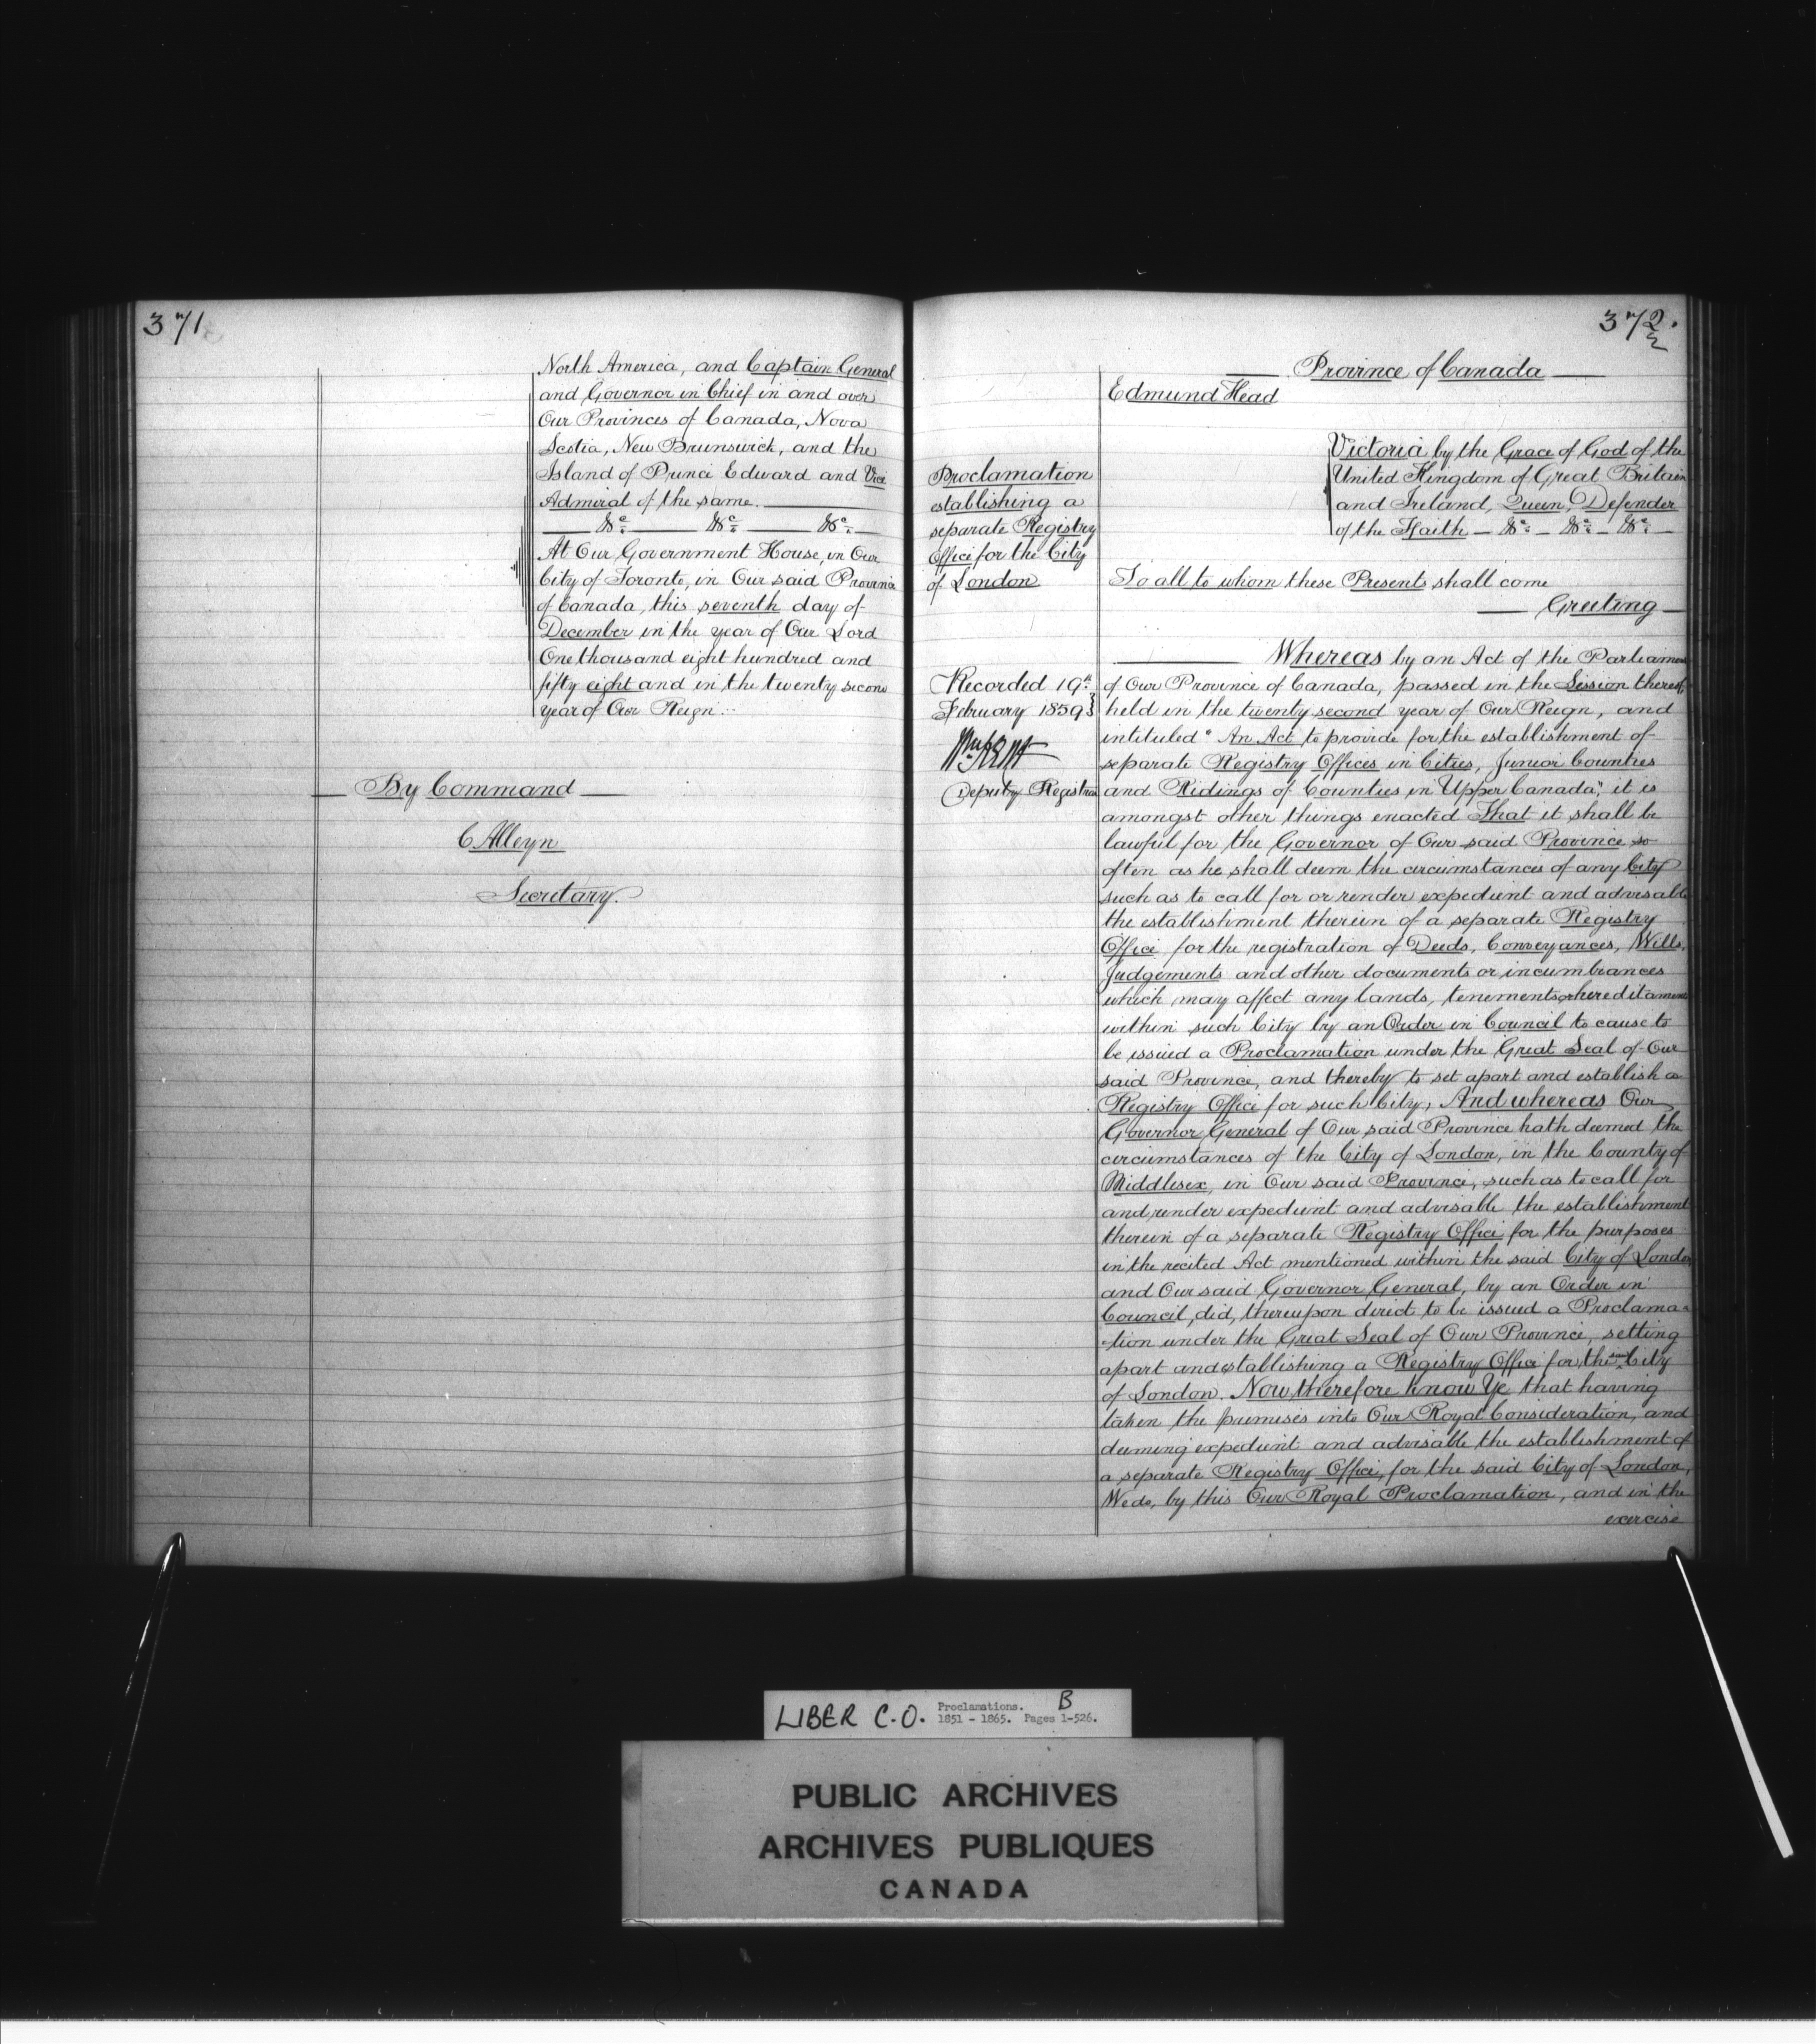 371
North America, and Captain General
and Governor in Chief in and over
Our Provinces of Canada, Nova
Scotia, New Brunswick, and the
Island of Prince Edward and Vice
Admiral of the same.
&c. &c. &c.
At Our Government House, in Our
City of Toronto, in Our said Province
of Canada, this seventh day of
December in the year of Our Lord
One thousand eight hundred and
fifty eight and in the twenty second
year of Our Reign.
By Command
C Alleyn
Secretary.
372.
Province of Canada
Edmund Head
Victoria by the Grace of God of the
United Kingdom of Great Britain
and Ireland, Queen, Defender
of the Faith &c. &c. &c.
Proclamation
establishing a
separate Registry
Office for the City
of London
To all to whom these Presents shall come
Greeting
Recorded 19th
February 1859
Deputy Registrar
Whereas by an Act of the Parliament
of Our Province of Canada, passed in the Session thereof,
held in the twenty second year of Our Reign, and
intituled "An Act to provide for the establishment of
separate Registry Offices in Cities, Junior Counties
and Ridings of Counties in Upper Canada", it is
amongst other things enacted That it shall be
lawful for the Governor of Our said Province so
often as he shall deem the circumstances of any City
such as to call for or render expedient and advisable
the establishment therein of a separate Registry
Office for the registration of Deeds, Conveyances, Wills,
Judgements and other documents or incumbrances
which may affect any lands, tenements or hereditaments
within such City by an Order in Council to cause to
be issued a Proclamation under the Great Seal of Our
said Province, and thereby to set apart and establish a
Registry Office for such City, And whereas Our
Governor General of Our said Province hath deemed the
circumstances of the City of London, in the County of
Middlesex, in Our said Province, such as to call for
and render expedient and advisable the establishment
therein of a separate Registry Office for the purposes
in the recited Act mentioned within the said City of London
and Our said Governor General, by an Order in
Council, did, thereupon direct to be issued a Proclama-
-tion under the Great Seal of Our Province, setting
apart and establishing a Registry Office for the said City
of London. Now therefore know Ye that having
taken the premises into Our Royal Consideration, and
deeming expedient and advisable the establishment of
a separate Registry Office, for the said City of London,
We do, by this Our Royal Proclamation, and in the
exercise
LIBER C.O. Proclamations. B
1851 - 1865. Pages 1-526.
PUBLIC ARCHIVES
ARCHIVES PUBLIQUES
CANADA